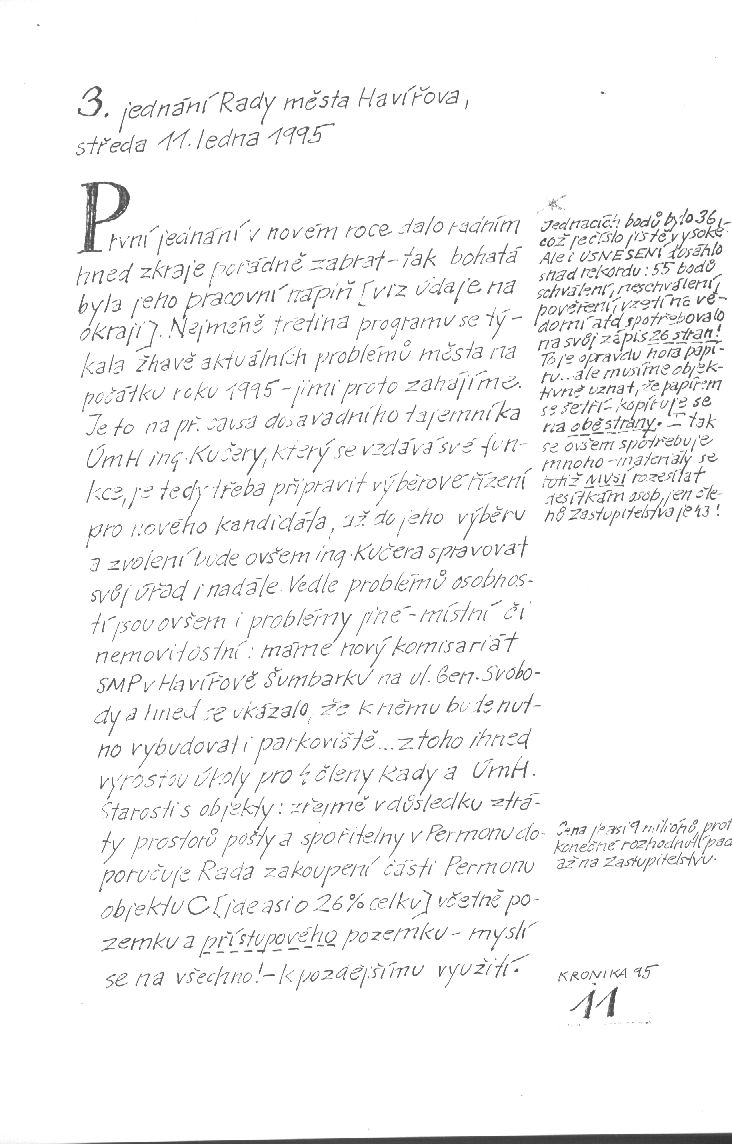 3. jednání Rady města Havířova,
středa 11. ledna 1995
První jednání v novém roce dalo radním
hned zkraje pořádně zabrat – tak bohatá
byla jeho pracovní náplň [viz údaje na
okraji]. Nejméně třetina programu se tý-
kala žhavě aktuálních problémů města na
počátku roku 1995 – jimi proto zahájíme.
Je to na př. causa dosavadního tajemníka
ÚmH ing. Kučery, který se vzdává své fun-
kce, je tedy třeba připravit výběrové řízení
pro nového kandidáta, až do jeho výběru
a zvolení bude ovšem ing. Kučera spravovat
svůj úřad i nadále. Vedle problémů osobnos-
tí jsou ovšem i problémy jiné – místní či
nemovitostní: máme nový komisariát
SMP v Havířově Šumbarku na ul. Gen. Svobo-
dy a hned se ukázalo, že k němu bude nut-
no vybudovat i parkoviště... z toho ihned
vyrostou úkoly pro 4 členy Rady a ÚmH.
Starosti s objekty: zřejmě v důsledku ztrá-
ty prostorů pošty a spořitelny v Permonu do-
poručuje Rada zakoupení části Permonu
objektu C [jde asi o 26% celku] včetně po-
zemku a přístupového pozemku – myslí
se na všechno! – k pozdějšímu využití.
Jednacích bodů bylo 36,
což je číslo jistě vysoké.
Ale i USNESENÍ dosáhlo
snad rekordu: 55 bodů
schválení, neschválení,
pověření, vzetí na vě-
domí atd spotřebovalo
na svůj zápis 26 stran!
To je opravdu hora papí-
ru... ale musíme objek-
tivně uznat, že papírem
se šetří – kopíruje se
na obě strany. – I tak
se ovšem spotřebuje
mnoho – materiály se
totiž MUSÍ rozesílat
desítkám osob, jen čle-
nů Zastupitelstva je 43!
Cena je asi 9 milionů, prot
konečné rozhodnutí pad
až na Zastupitelstvu.
KRONIKA 95
11